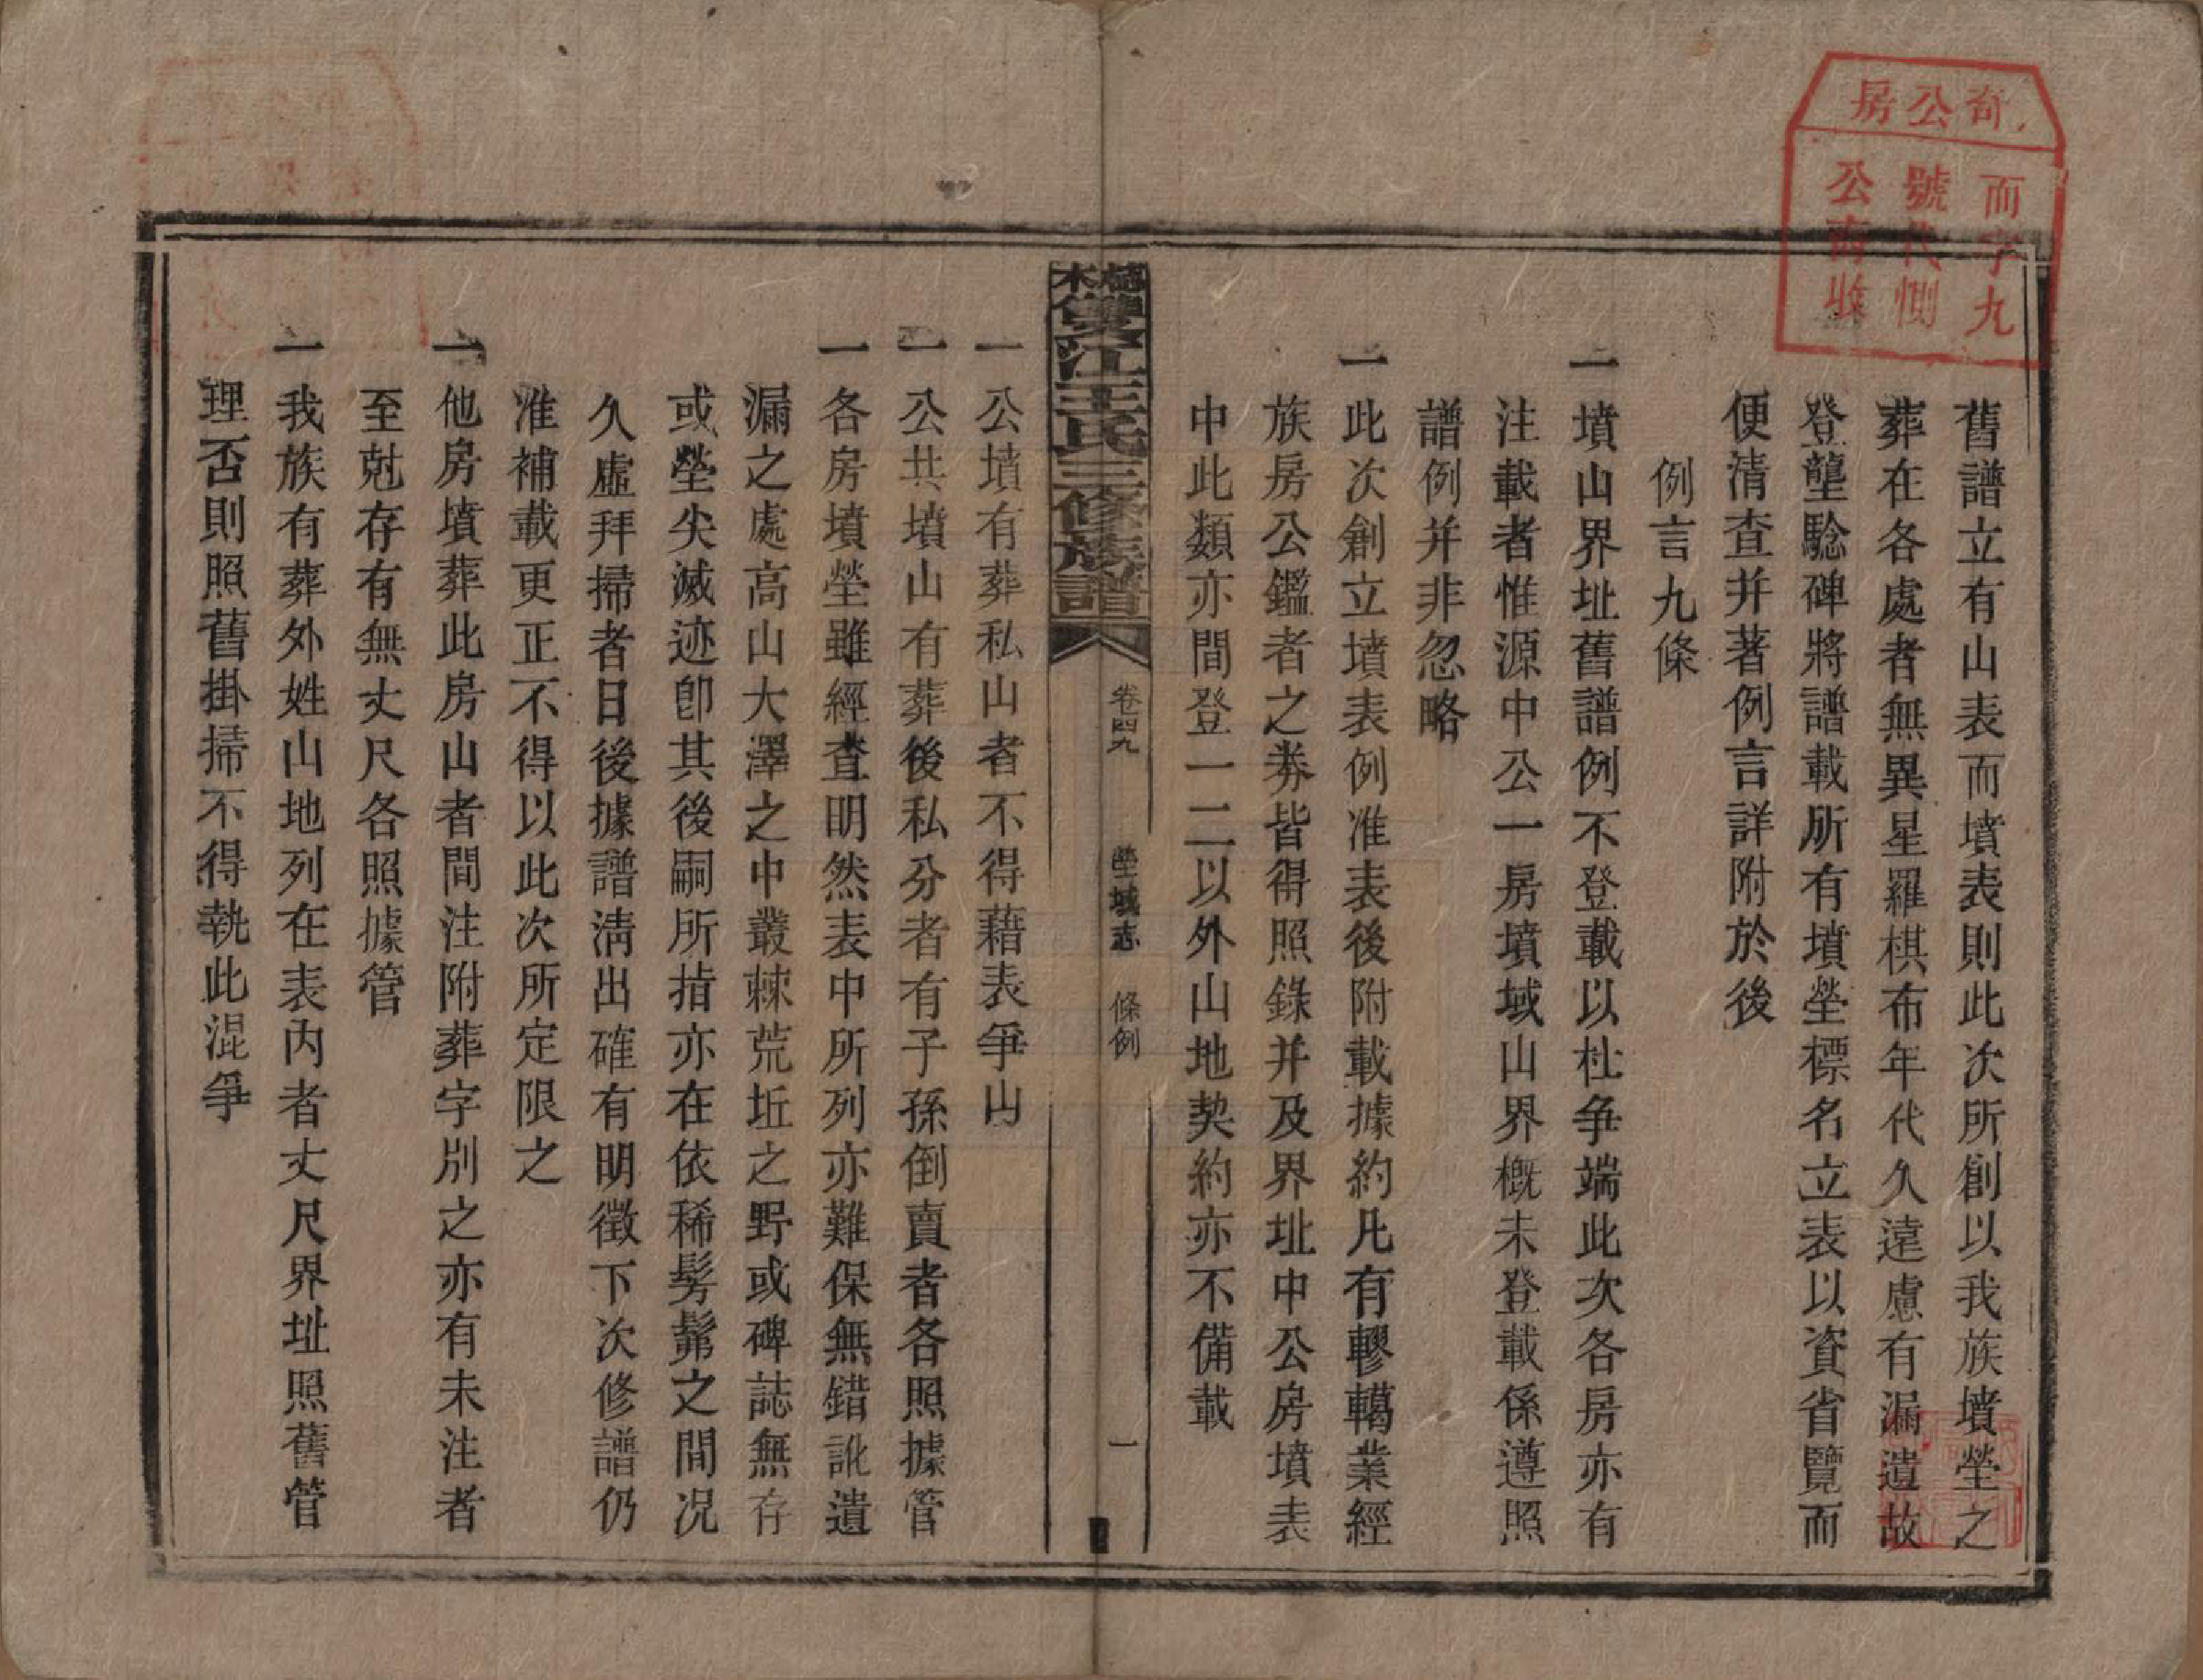 舊譜立有山表而墳表則此次所創以我族墳塋之
葬在各處者無異星羅棋布年代久遠慮有漏遺故
登壟騐碑將譜載所有墳塋標名立表以資省覽而
便清查并著例言詳附於後
例言九條
一墳山界址舊譜例不登載以杜争端此次各房亦有
注載者惟源中公一房墳域山界概未登載係遵照
譜例并非忽略
一此次創立墳表例准表後附載據約凡有轇轕業經
族房公鑑者之券皆得照錄并及界址中公房墳表
中此類亦間登一二以外山地契約亦不備載
雙江王氏三修族譜
卷四九
塋域志
條例
一
一公墳有葬私山者不得藉表爭山
一公共墳山有葬後私分者有子孫倒賣者各照據管
一各房墳塋雖經查明然表中所列亦難保無錯訛遺
漏之處高山大澤之中叢棘荒坵之野或碑誌無存
或塋尖滅迹卽其後嗣所指亦在依稀髣髴之間况
久虛拜掃者日後據譜淸出確有明徵下次修譜仍
准補載更正不得以此次所定限之
一他房墳葬此房山者間注附葬字別之亦有未注者
至尅存有無丈尺各照據管
一我族有葬外姓山地列在表內者丈尺界址照舊管
理否則照舊掛掃不得執此混爭
房公奇
而字九
號代惻
公南收